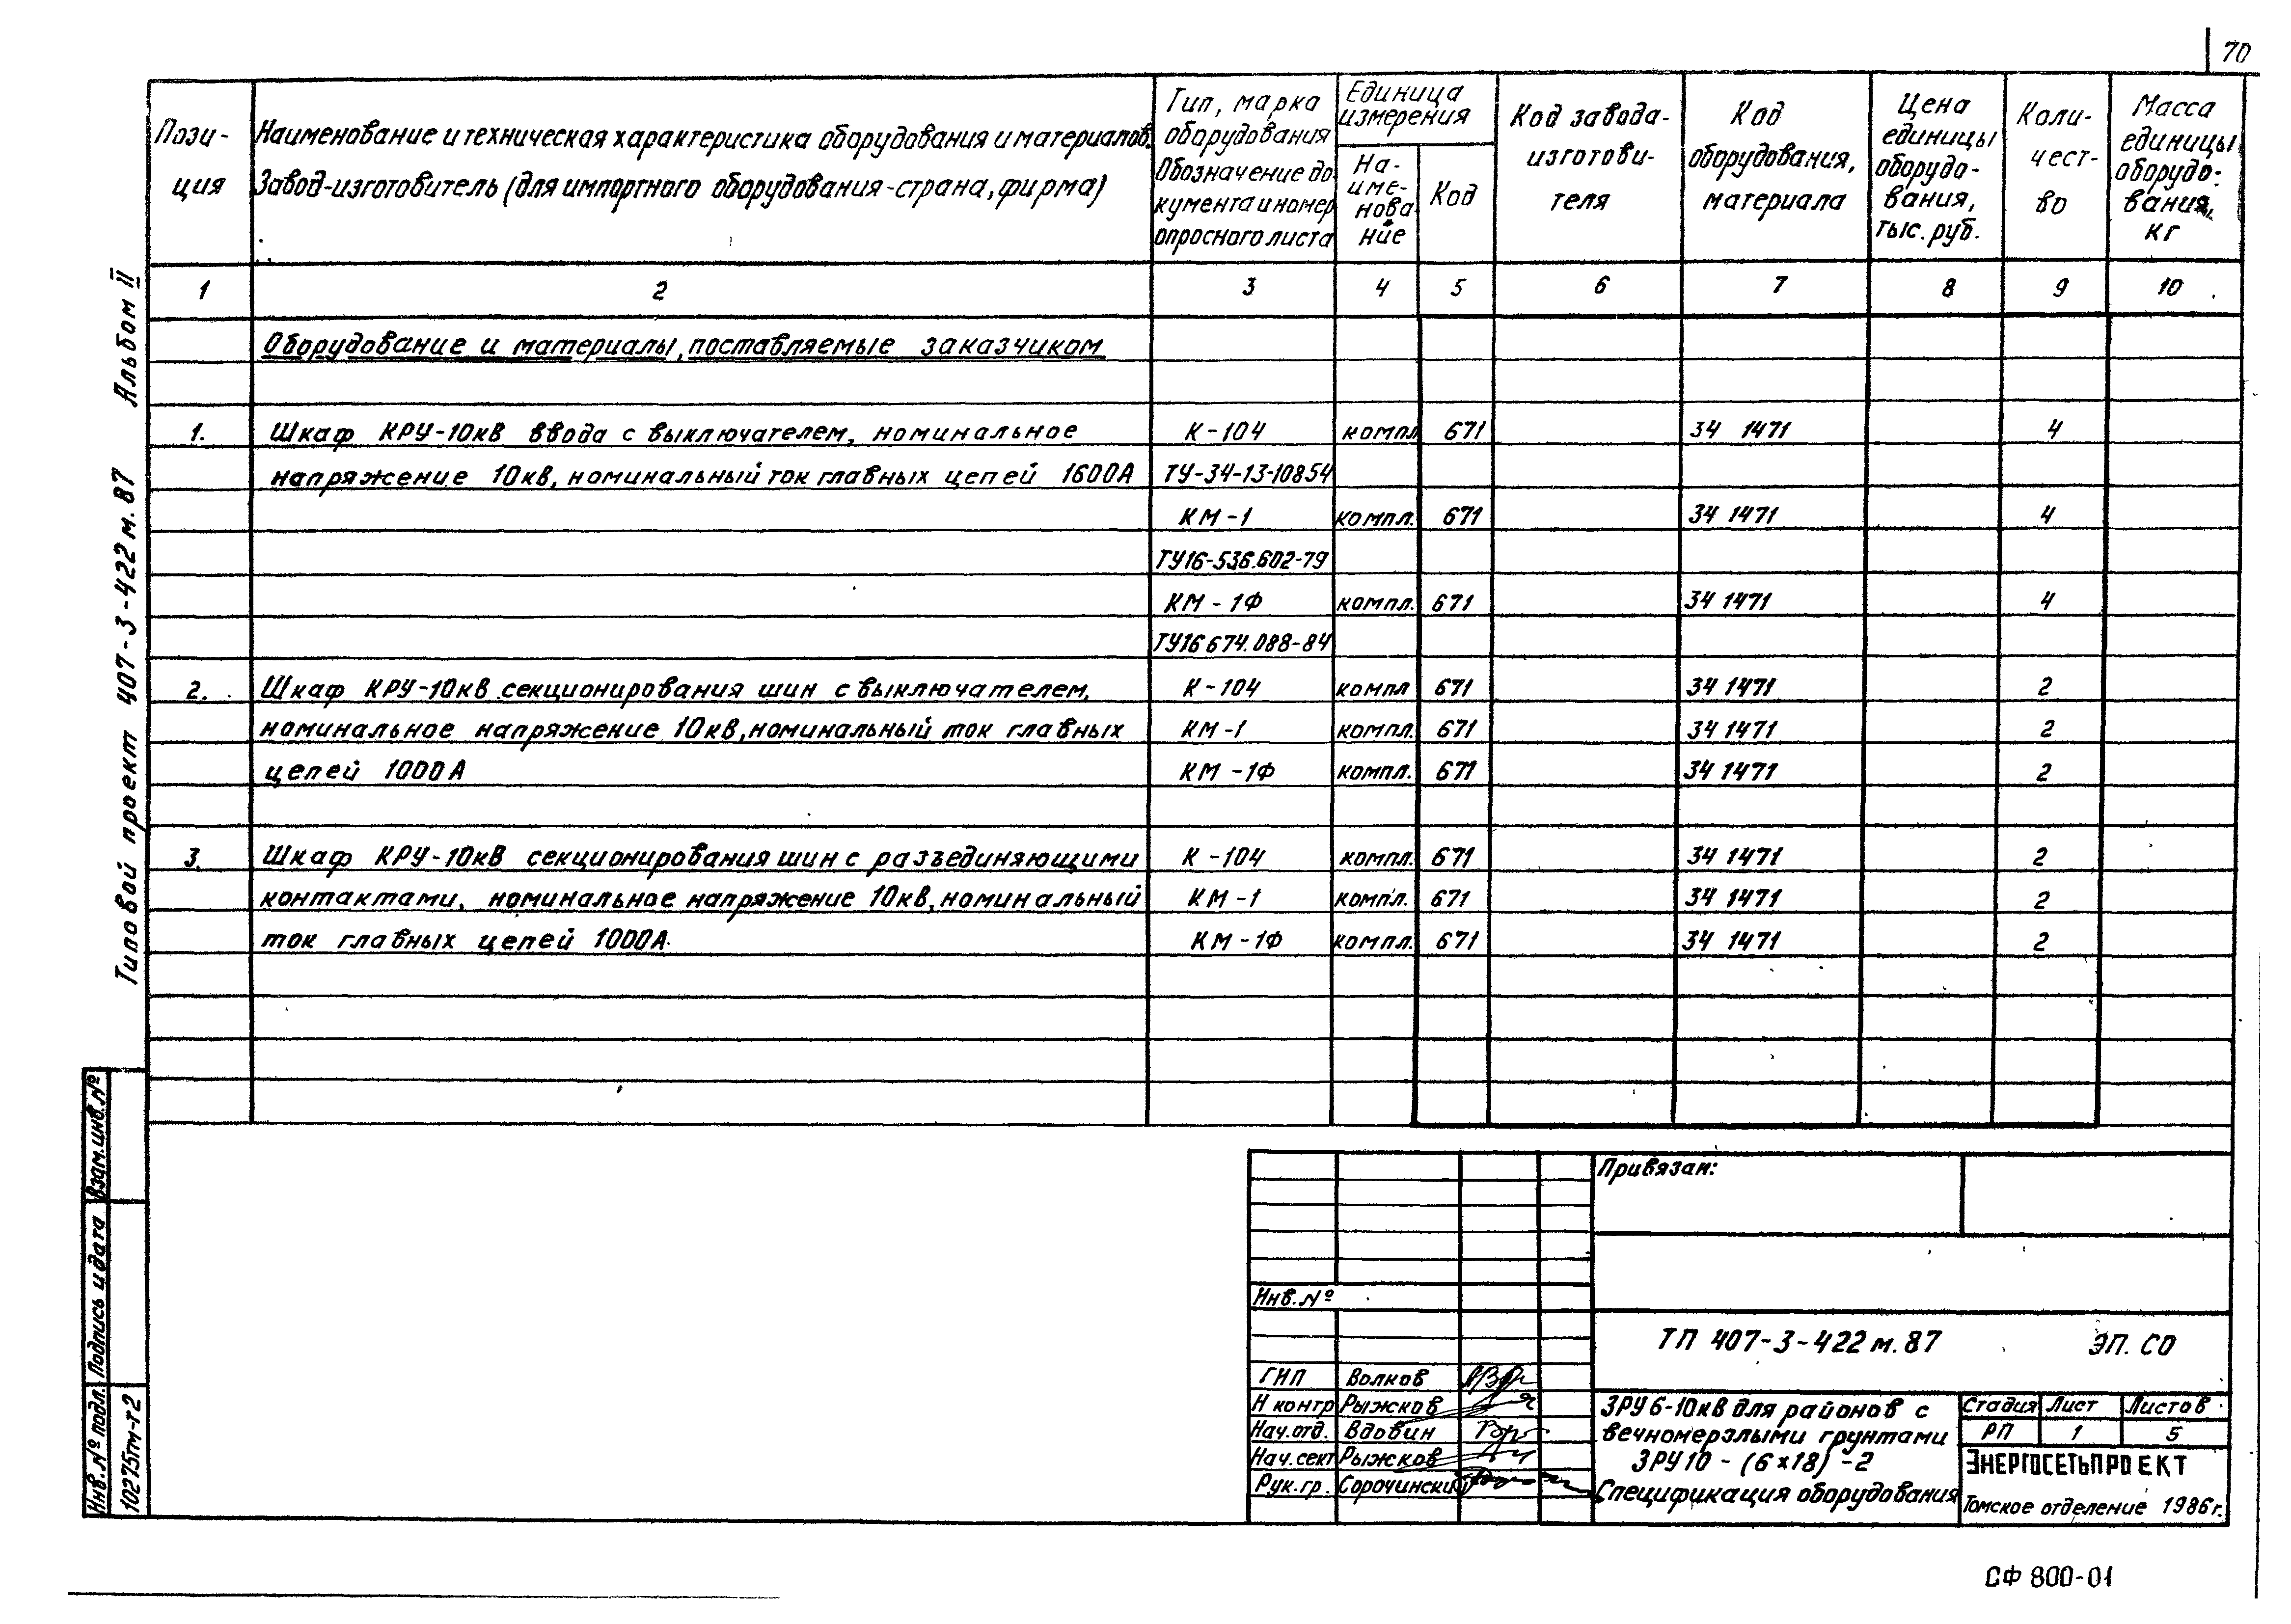 70
Пози-
ция
Наименование и техническая характеристика оборудования и материалов.
Завод-изготовитель (для импортного оборудования-страна, фирма)
Тип, марка
оборудования
Обозначение до
кумента и номер
опросного листа
Единица
измерения
На-
име-
нова-
ние
Код
Код завода-
изготови-
теля
Код
оборудования,
материала
Цена
единицы
оборудо-
вания,
тыс. руб.
Коли-
чест-
во
Масса
единицы
оборудо-
вания,
кг
1 2 3 4 5 6 7 8 9 10
Оборудование и материалы, поставляемые заказчиком
1. Шкаф КРУ-10кВ ввода с выключателем, номинальное К-104 компл 671 34 1471 4
напряжение 10кВ, номинальный ток главных цепей 1600А ТУ-34-13-10854
КМ-1 компл. 671 34 1471 4
ТУ16-536.602-79
КМ-1Ф компл. 671 34 1471 4
ТУ16 674.088-84
2. Шкаф КРУ-10кВ секционирования шин с выключателем, К-104 компл 671 34 1471 2
номинальное напряжение 10кВ, номинальный ток главных КМ-1 компл. 671 34 1471 2
цепей 1000А КМ-1Ф компл. 671 34 1471 2
3. Шкаф КРУ-10кВ секционирования шин с разъединяющими К-104 компл. 671 34 1471 2
контактами, номинальное напряжение 10кВ, номинальный КМ-1 компл. 671 34 1471 2
ток главных цепей 1000А. КМ-1Ф компл. 671 34 1471 2
Типовой проект 407-3-422м.87 Альбом II
Взам.инв.№
Подпись и дата
Инв.№ подл.
10275тм-т2
Привязан:
Инв.№
ТП 407-3-422м.87 ЭП.СО
ГИП Волков
Н контр Рыжков
Нач.отд. Вдовин
Нач.сект Рыжков
Рук.гр. Сорочинский
ЗРУ 6-10кВ для районов с
вечномерзлыми грунтами
ЗРУ10-(6х18)-2
Спецификация оборудования
Стадия Лист Листов
РП 1 5
ЭНЕРГОСЕТЬПРОЕКТ
Томское отделение 1986г.
СФ 800-01